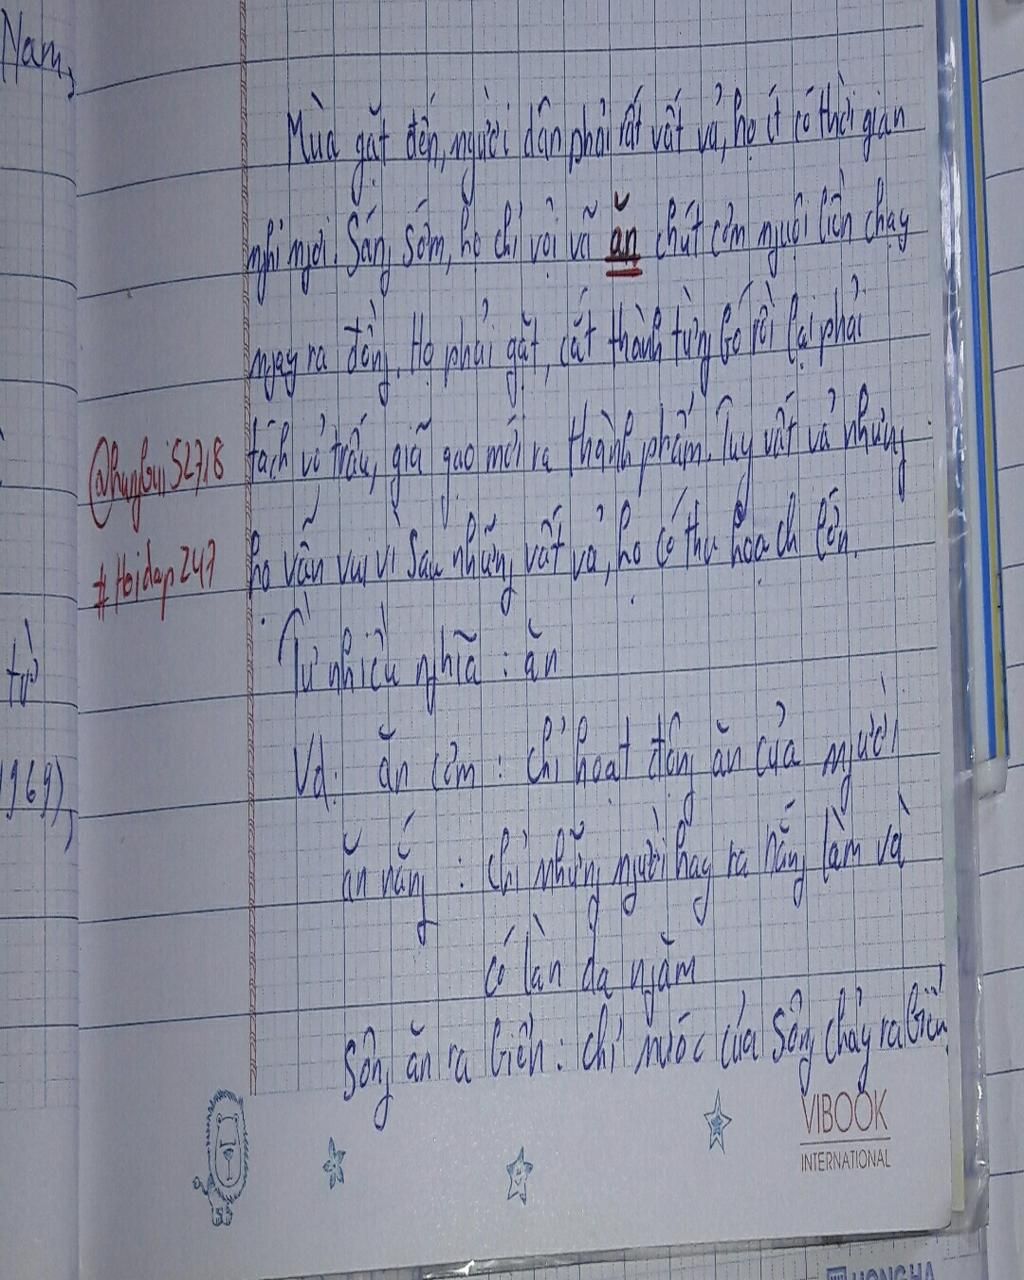 Nam,
Mùa gặt đến, người dân phải rất vất vả, họ ít có thời gian
nghỉ ngơi. Sáng sớm, họ chỉ vội vã ăn chút cơm nguội liền chạy
ngay ra đồng. Họ phải gặt, cắt thành từng bó rồi lại phải
tách vỏ trấu, giã gạo mới ra thành phẩm. Tuy vất vả nhưng
họ vẫn vui vì sau những vất vả, họ có thu hoạch lớn.
@hungbui52718
#Hoidap247
Từ nhiều nghĩa : ăn
từ
Vd: ăn cơm : chỉ hoạt động ăn của người
1969),
ăn nắng : chỉ những người hay ra nắng làm và
có làn da ngăm
Sông ăn ra biển : chỉ nước của sông chảy ra biển
VIBOOK
INTERNATIONAL
HONG HA